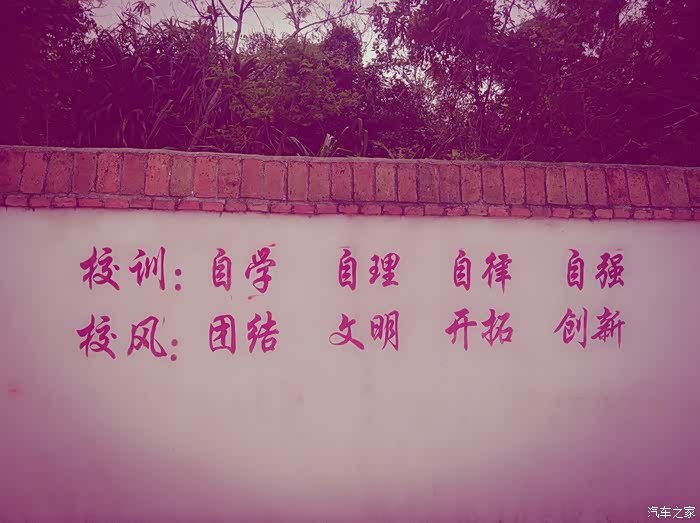 校训：自学 自理 自律 自强
校风：团结 文明 开拓 创新
汽车之家